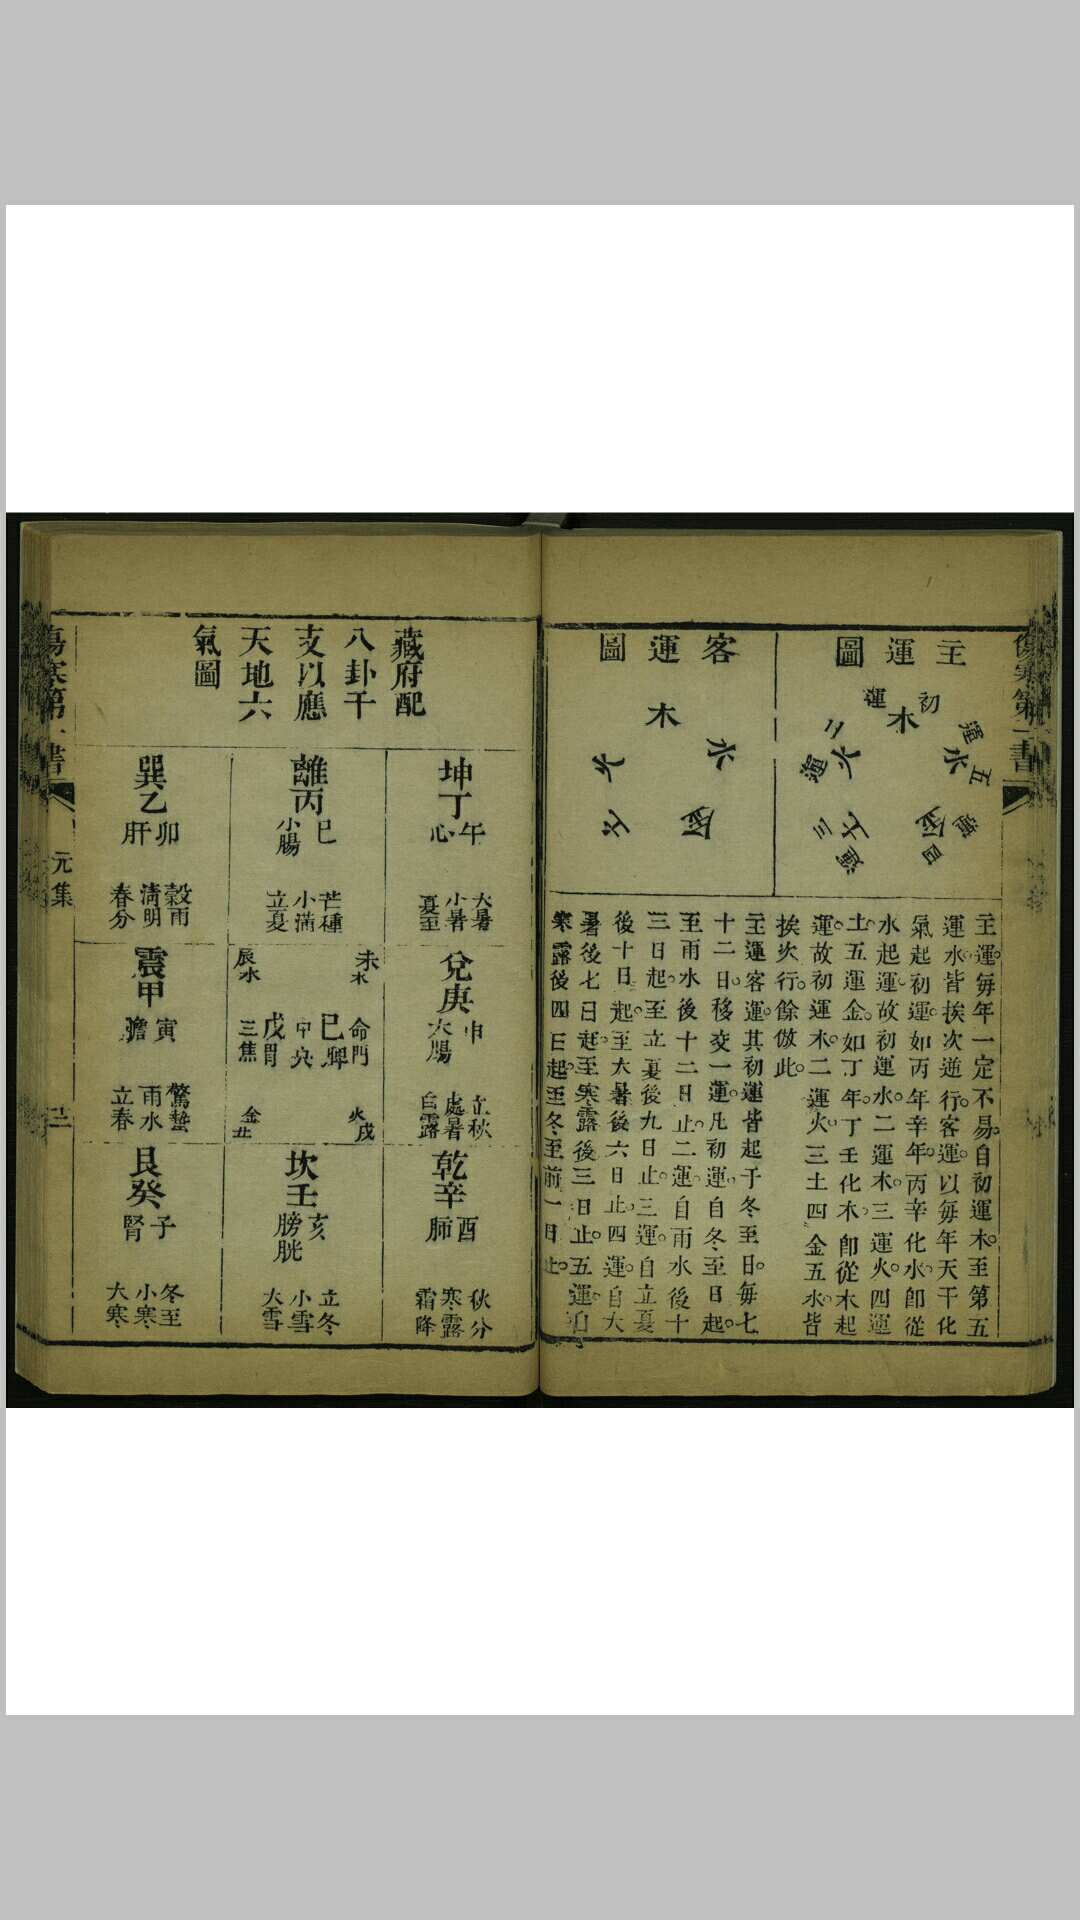 傷寒第一書
主運圖
初運
木
二運
火
三運
土
四運
金
五運
水
客運圖
木
火
土
金
水
主運每年一定不易自初運木至第五
運水皆挨次逆行客運以每年天干化
氣起初運如丙年辛年丙辛化水卽從
水起運故初運水二運木三運火四運
土五運金如丁年丁壬化木卽從木起
運故初運木二運火三土四金五水皆
挨次行餘倣此
主運客運其初運皆起于冬至日每七
十二日移交一運凡初運自冬至日起
至雨水後十二日止二運自雨水後十
三日起至立夏後九日止三運自立夏
後十日起至大暑後六日止四運自大
暑後七日起至寒露後三日止五運自
寒露後四日起至冬至前一日止
藏府配
八卦干
支以應
天地六
氣圖
坤丁
午
心
大暑
小暑
夏至
離丙
巳
小腸
芒種
小滿
立夏
巽乙
卯
肝
穀雨
清明
春分
兌庚
申
大腸
立秋
處暑
白露
未木
命門
己脾
中央
戊胃
三焦
辰水
火戌
金丑
震甲
寅
膽
驚蟄
雨水
立春
乾辛
酉
肺
秋分
寒露
霜降
坎壬
亥
膀胱
立冬
小雪
大雪
艮癸
子
腎
冬至
小寒
大寒
傷寒第一書
元集